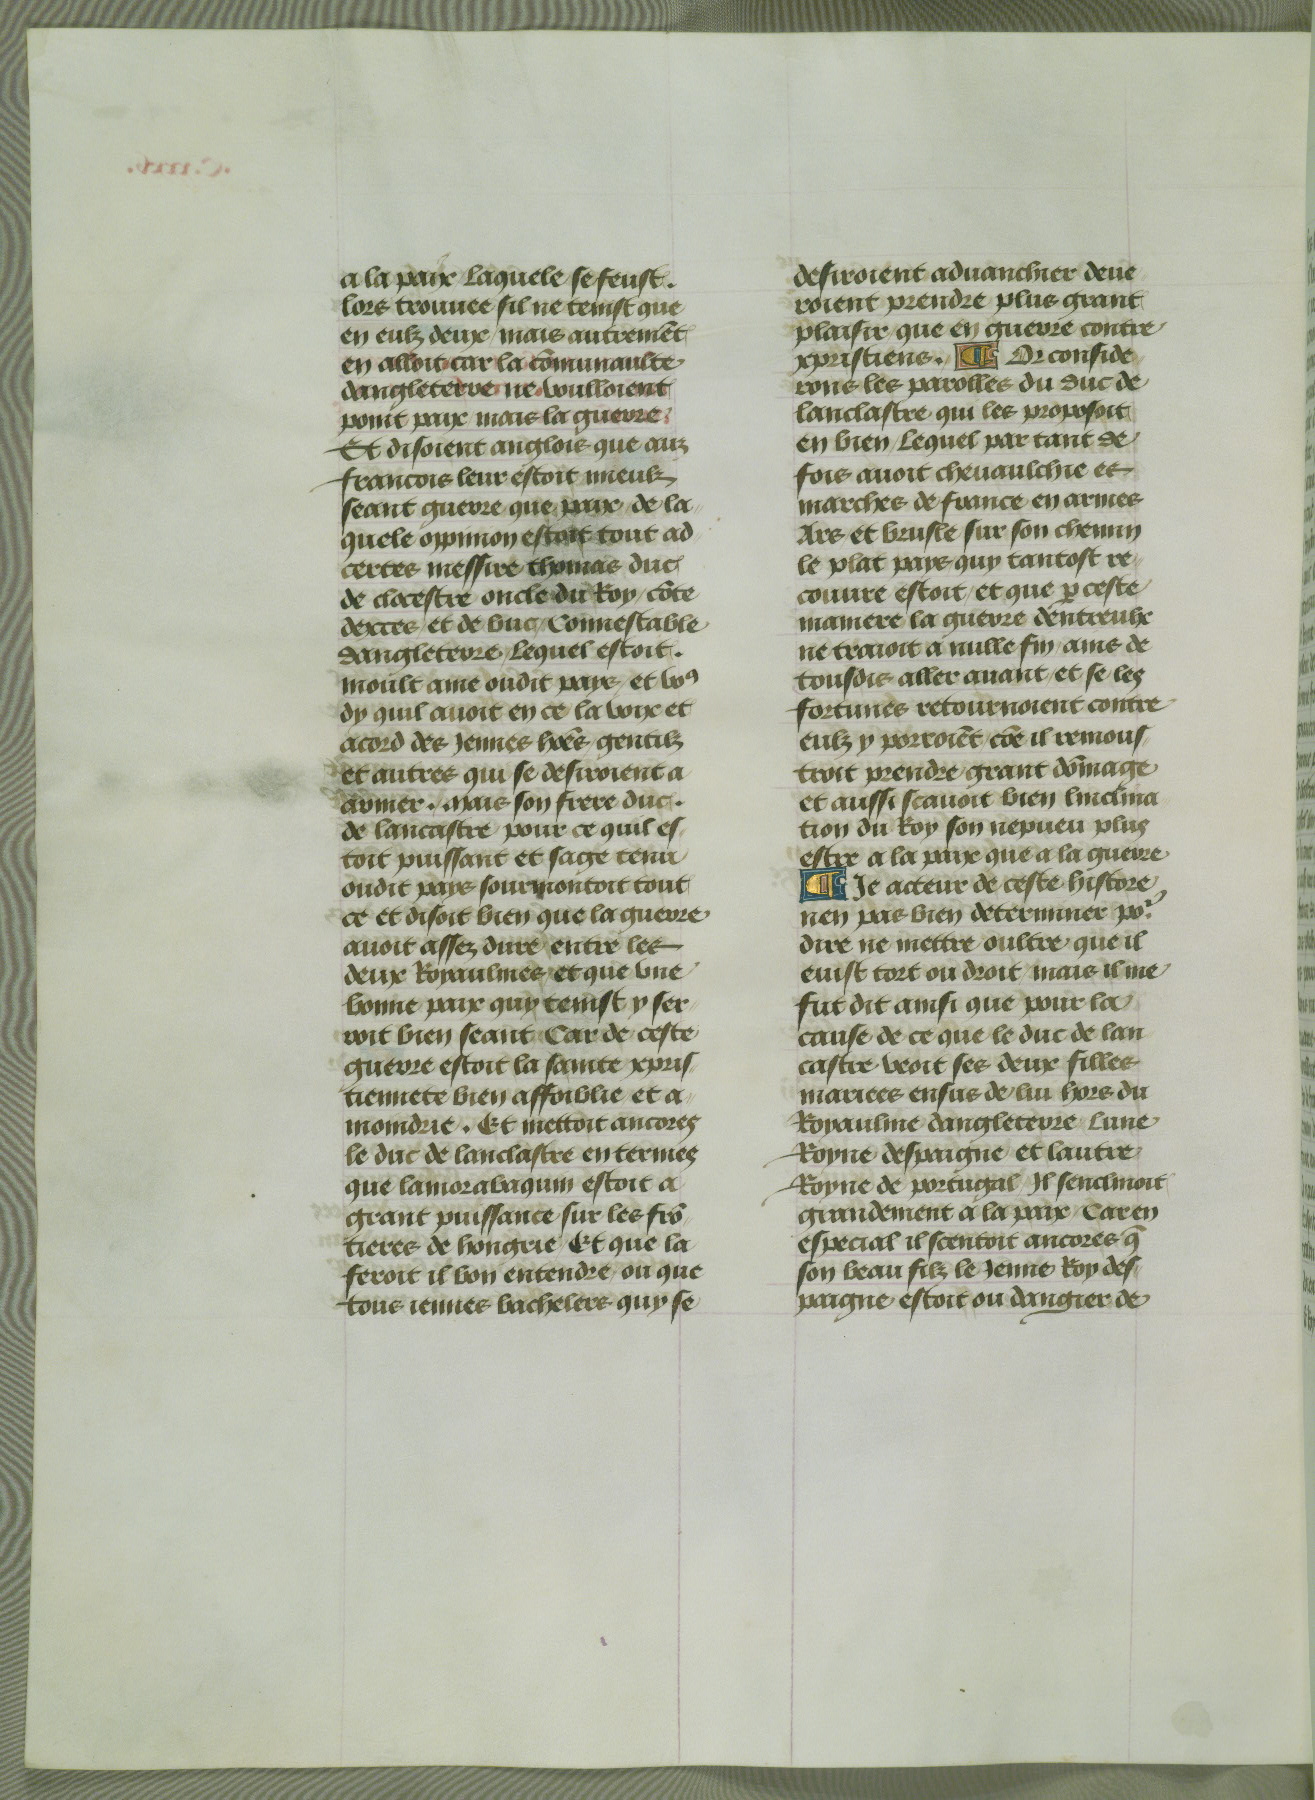 a la paix laquele se feust.
lors trouuee sil ne tenist que
en eulz deux / mais autremēt
en alloit car la cōmunaulte
dangleterre ne voulloient
point paix mais la guerre.
Et disoient anglois que aux
francois leur estoit mieulz
seant guerre que paix / de la
quele oppinion estoit tout ad
certes messire thomas duc
de clocestre oncle du Roy / cōte
dexces et de buc / Connestable
dangleterre / lequel estoit.
moult ame oudit pays / et voꝰ
dy quil auoit en ce la voix et
acord des Jennes hōes gentilz
et autres qui se desiroient a
armer. mais son frere duc.
de lancastre pour ce quil es
toit puissant et sage tenu
oudit pays sourmontoit tout
ce et disoit bien que la guerre
auoit assez dure entre les
deux Royaulmes et que vne
bonne paix quy tenist y ser
roit bien seant Car de ceste
guerre estoit la sainte xpris
tiennete bien affoiblie et a
moindrie. Et mettoit ancores
le duc de lanclastre en termes
que lamorabaquin estoit a
grant puissance sur les frō
tieres de hongrie Et que la
feroit il bon entendre / ou que
tous iennes bachelers quy se
desiroient aduanchier deue
roient prendre plus grant
plaisir que en guerre contre
xpristiens. ¶ Or conside
rons les parolles du duc de
lanclastre qui les proposoit
en bien lequel par tant de
fois auoit cheuaulchie es
marches de france en armes
Ars et brusle sur son chemin
le plat pays quy tantost re
couure estoit / et que ꝑ ceste
maniere la guerre dentreulx
ne traioit a nulle fin / ains de
tousdis aller auant et se les
fortunes retournoient contre
eulz y porroiēt cōe il remous
troit prendre grant dōmage
et aussi scauoit bien linclina
tion du Roy son nepueu plus
estre a la paix que a la guerre
¶ Je acteur de ceste histore
nen pas bien determiner poʳ
dire ne mettre oultre que il
euist tort ou droit mais il me
fut dit ainsi que pour la
cause de ce que le duc de lan
castre veoit ses deux filles
mariees ensus de lui hors du
Royaulme dangleterre Lune
Royne despaigne et lautre
Royne de portugal Il senclinoit
grandement a la paix / Car en
especial il scentoit ancores q̄
son beau filz le Jenne Roy des
paigne estoit ou dangier de